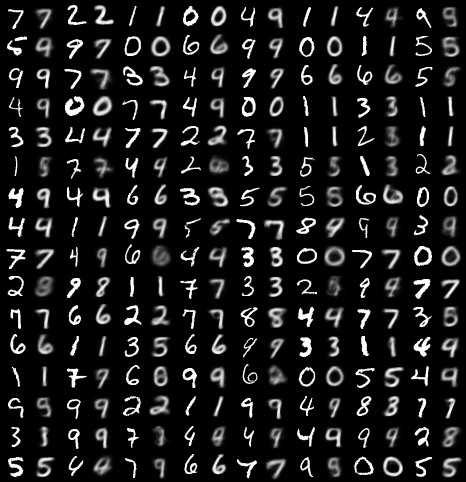 7 7 2 2 1 1 0 0 4 9 1 1 4 4 9 9
5 9 9 7 0 0 6 6 9 9 0 0 1 1 5 5
9 9 7 7 3 3 4 9 9 9 6 6 6 6 5 5
4 9 0 0 7 7 4 9 0 0 1 1 3 3 1 1
3 3 4 4 7 7 2 2 7 7 1 1 2 3 1 1
1 5 7 7 4 4 2 3 3 5 5 1 3 2 2
4 9 4 9 6 6 3 3 5 5 5 5 6 6 0 0
4 9 1 1 9 9 5 5 7 7 8 9 9 9 3 9
7 7 4 9 6 4 4 3 3 0 0 7 7 0 0
2 8 9 8 1 1 7 7 3 3 2 9 9 7 7
7 7 6 6 2 2 7 7 8 8 4 4 7 7 3 5
6 6 1 1 3 5 6 6 9 9 3 3 1 1 4 9
1 1 7 9 6 0 9 9 6 0 0 5 5 4 9
9 9 9 9 2 2 1 1 9 9 4 9 8 3 7 7
3 3 9 9 7 4 9 4 9 4 9 9 9 2 8
5 5 4 4 7 9 6 6 7 7 9 5 0 0 5 5